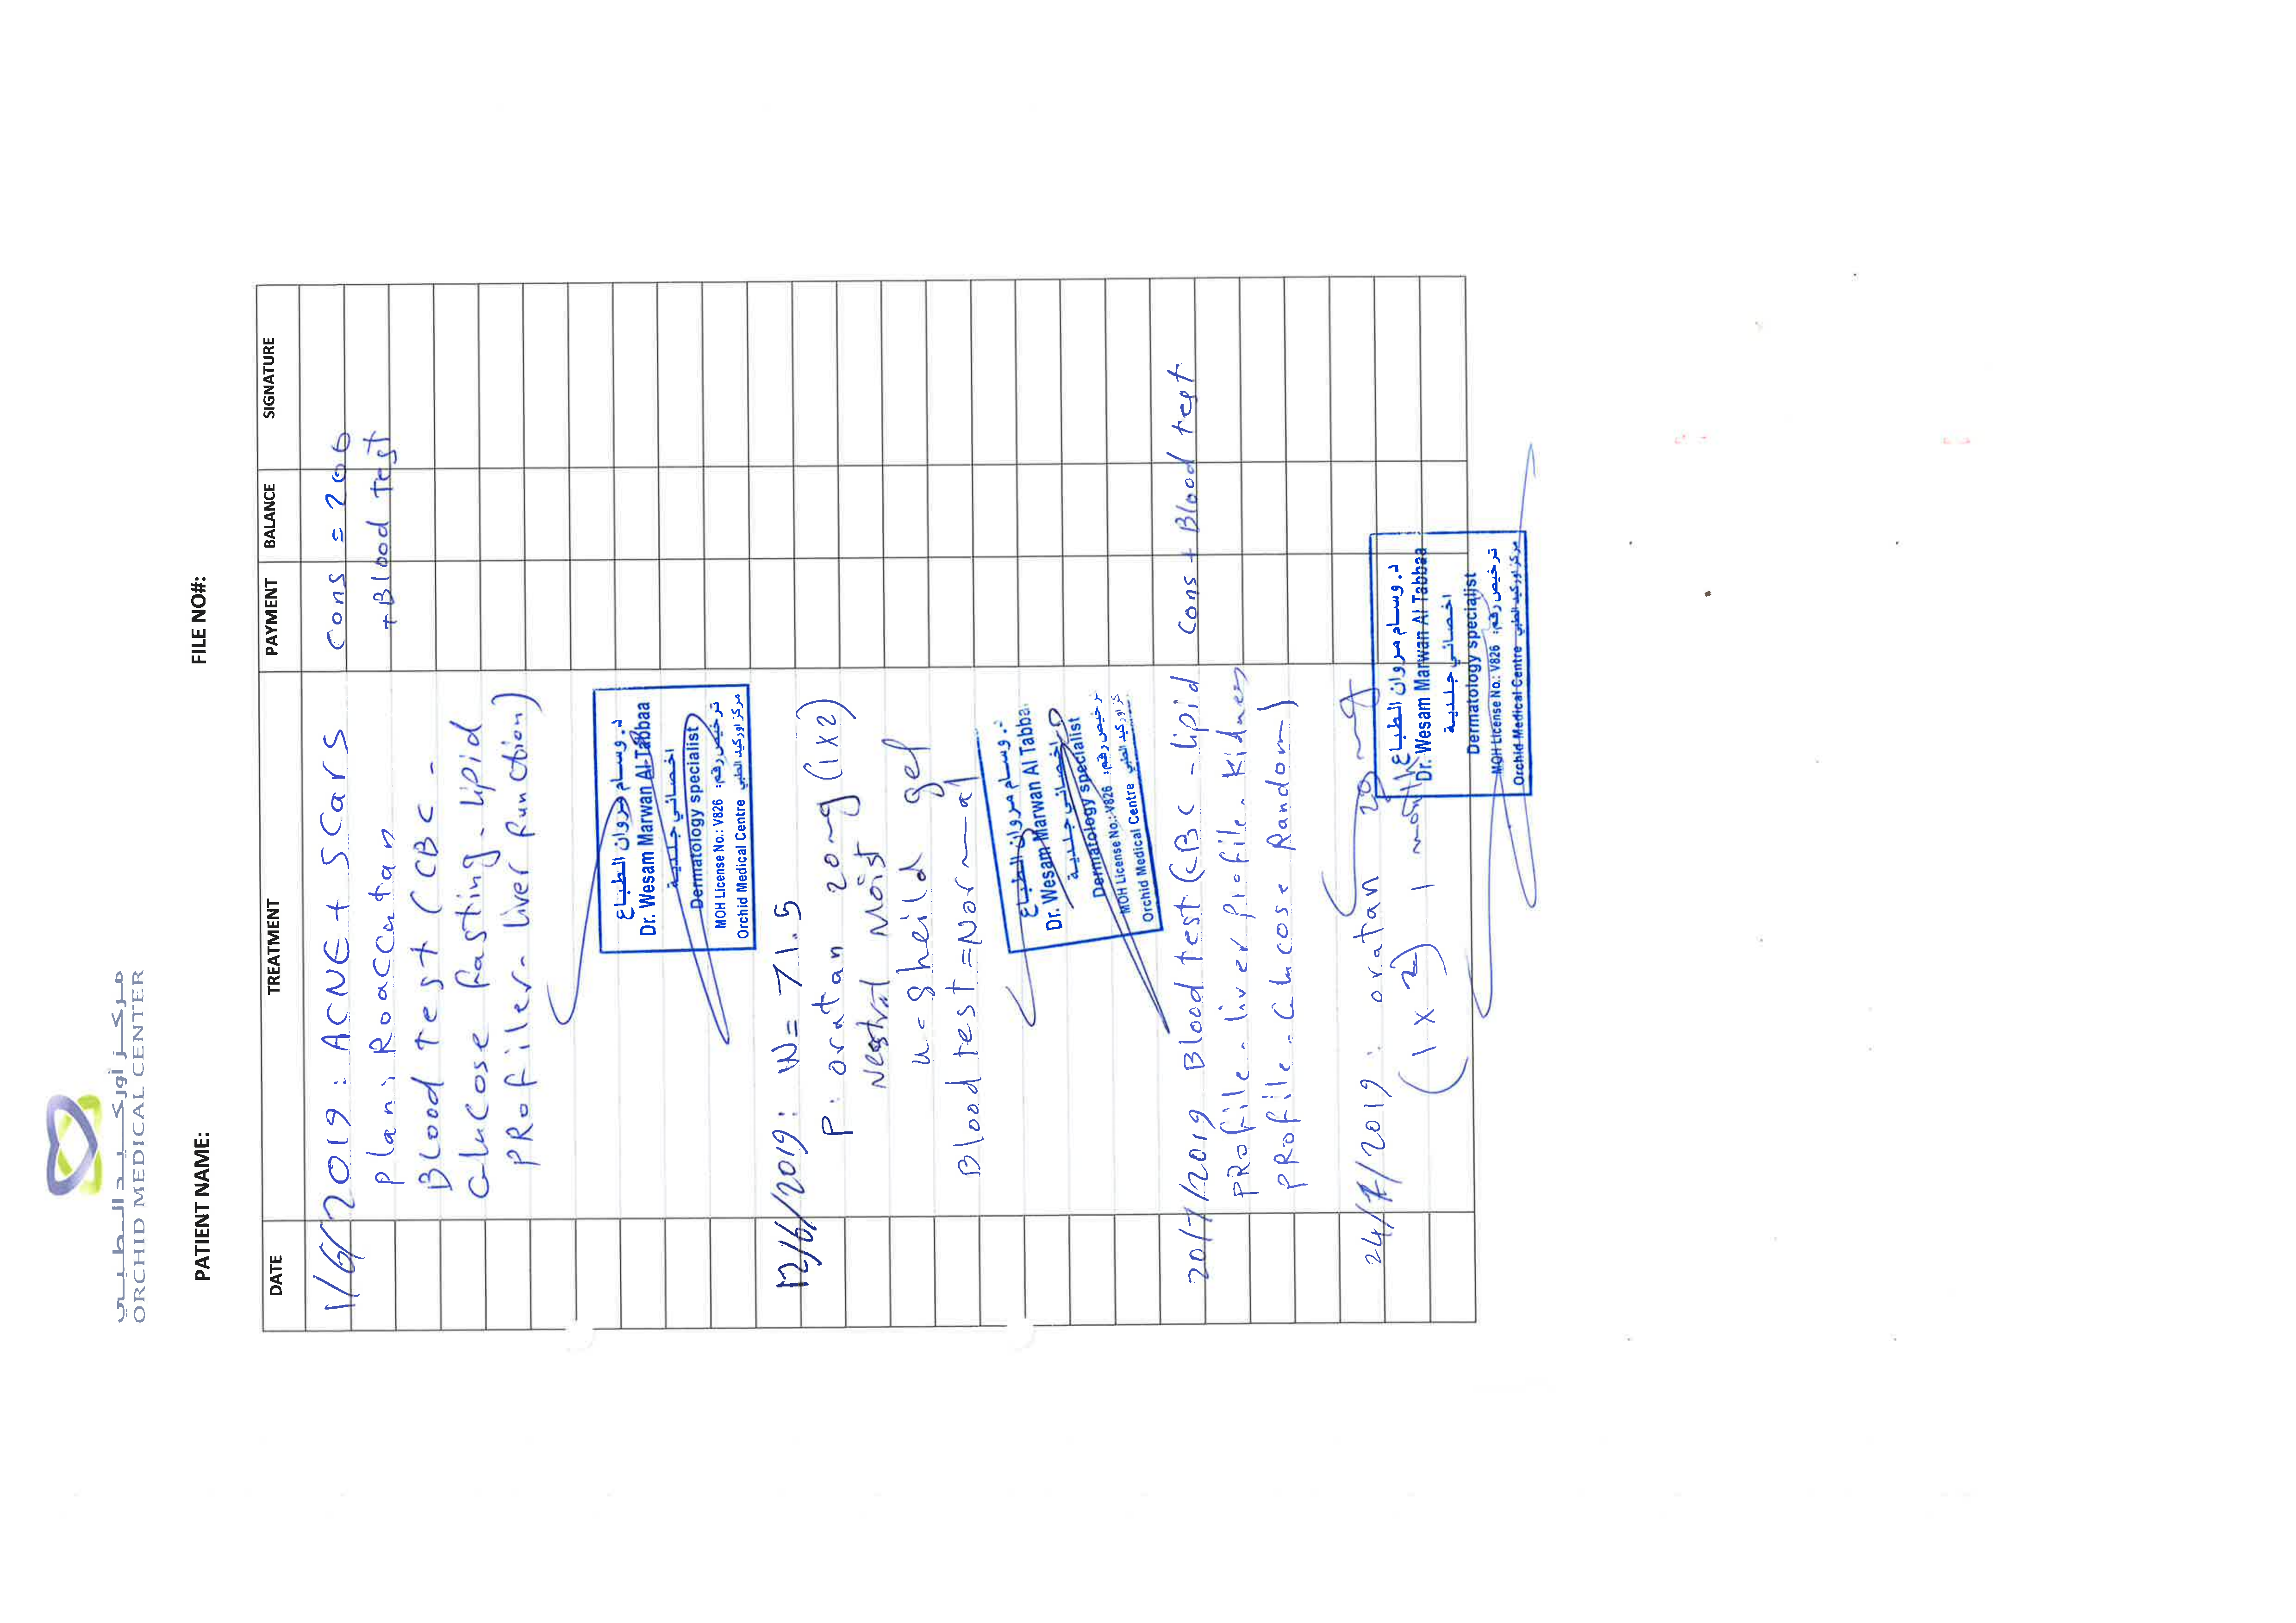 مركز أوركيد الطبي
ORCHID MEDICAL CENTER
PATIENT NAME: FILE NO#:
DATE TREATMENT PAYMENT BALANCE SIGNATURE
1/6/2019: ACNE + SCars Cons = 200
plan: Roaccutan + Blood Test
BLood Test (CBC -
Glucose fasting - lipid
PRofiler - liver function)
د. وسام مروان الطباع
Dr. Wesam Marwan Al Tabbaa
اخصائي جلدية
Dermatology specialist
MOH License No.: V826 ترخيص رقم:
Orchid Medical Centre مركز اوركيد الطبي
12/6/2019: W = 71.5
P: oratan 20mg (1x2)
Moist
u-sheild gel
Blood test = Normal
د. وسام مروان الطباع
Dr. Wesam Marwan Al Tabba
اخصائي جلدية
Dermatology specialist
MOH License No.: V826 ترخيص رقم:
Orchid Medical Centre كز اوركيد الطبي
20/7/2019 Blood test (CBC - lipid Cons + Blood test
PRofile - liver Profile - kidney
PRofile - Glucose Random)
24/7/2019: oratan 20mg
(1 x 2) 1 month
د. وسام مروان الطباع
Dr. Wesam Marwan Al Tabbaa
اخصائي جلدية
Dermatology specialist
MOH License No.: V826 ترخيص رقم:
Orchid Medical Centre مركز اوركيد الطبي